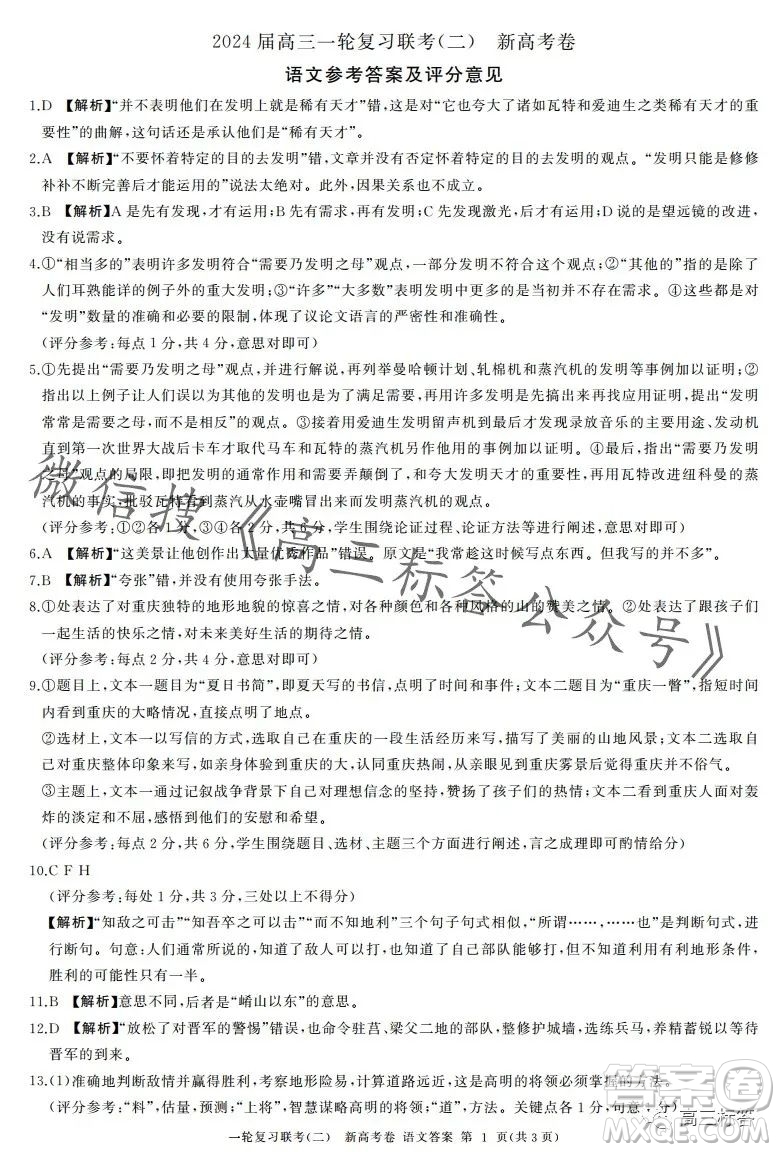 2024 届高三一轮复习联考(二) 新高考卷
语文参考答案及评分意见
1.D 【解析】“并不表明他们在发明上就是稀有天才”错，这是对“它也夸大了诸如瓦特和爱迪生之类稀有天才的重
要性”的曲解，这句话还是承认他们是“稀有天才”。
2.A 【解析】“不要怀着特定的目的去发明”错，文章并没有否定怀着特定目的去发明的观点。“发明只能是修修
补补不断完善后才能运用的”说法太绝对。此外，因果关系也不成立。
3.B 【解析】A 是先有发现，才有运用；B 先有需求，再有发明；C 先发现激光，后才有应用；D 说的是望远镜的改进，
没有说需求。
4.①“相当多的”表明许多发明符合“需要乃发明之母”观点，一部分发明与之不符合；②“其他的”指的是除了
人们耳熟能详的例子外的重大发明；③“许多”“大多数”表明发明中更多的是当初是不存在需求。④这些都是对
“发明”数量的准确和必要的限制，体现了议论文语言的严密性和准确性。
(评分参考：每点 1 分，共 4 分，意思对即可)
5.①先提出“需要乃发明之母”观点，并进行解说，再列举曼哈顿计划、轧棉机和蒸汽机的发明等事例加以证明；②
指出以上例子让人们误以为其他的发明也是为了满足需要，再用许多发明找出应用的事例加以证明，提出“发明
常常是需要之母，而不是相反”的观点。③接着用爱迪生发明留声机到最后才发现放音乐的主要用途、发动机
直到第一次世界大战后卡车才取代马车和瓦特的蒸汽机另作他用的事例加以证明。④最后，指出“需要乃发明
之母”观点的局限，即把发明的通常作用和需要弄颠倒了，并举例，用瓦特改进纽科曼的蒸
汽机的事实，批驳瓦特看到蒸汽从水壶嘴冒出来而发明蒸汽机的观点。
(评分参考：①②各 1 分，③④各 2 分，共 6 分，学生围绕论证过程、论证方法等进行阐述，意思对即可)
6.A 【解析】“这美景让他创作出大量优秀作品”错误。原文是“我常趁这时候写点东西。但我写的并不多”。
7.B 【解析】“夸张”错，并没有使用夸张手法。
8.①处表达了对重庆独特的地形地貌的惊喜之情，对各种颜色和各种风格的山的赞美之情。②处表达了跟孩子们
一起生活的快乐之情，对未来美好生活的期待之情。
(评分参考：每点 2 分，共 4 分，意思对即可)
9.①题目上，文本一题目为“夏日书简”，即夏天写的书信，点明了时间和事件；文本二题目为“重庆一瞥”，指短时
间内看到重庆的大略情况，点明了主要内容。
②选材上，文本一以写信的方式，选取了自己在重庆的一段生活经历，描写了美丽的山地风景；文本二选取自己
对重庆整体印象来写，写出了自己来到重庆雾景后见到重庆而产生的热爱。
③主题上，文本一通过记叙战争背景下自己对理想信念的坚持，赞扬了孩子们的热情；文本二看到重庆人面对轰
炸的淡定和不屈，感受到他们的安慰和希望。
(评分参考：每点 2 分，共 6 分，学生围绕题目、选材、主题三个方面进行阐述，言之成理即可酌情给分)
10.C F H
(评分参考：每处 1 分，共 3 分，三处以上不得分)
【解析】“知敌之可击”“知吾卒之可以击”“而不知地利”三个句子句式相似，“所谓……，……也”是判断句式，进
行断句。句意：人们通常所说的，知道了敌人可以打，知道自己的士兵能够去打，但是不知道有利的地形条件，
胜利的可能性只有一半。
11.B 【解析】意思不同，后者是“崤山以东”的意思。
12.D 【解析】“放松了对晋军的警惕”错误，也命令驻莒、梁父二地的部队，整修护城墙，选练兵马，养精蓄锐以等待
晋军的到来。
13.(1)准确地判断敌情并赢得胜利，考察地形险易，计算道路远近，这是高明的将领必须掌握的方法。
(评分参考：“料”，估量，预测；“上将”，智慧谋略高明的将领，各 1 分，句意 1 分)
一轮复习联考(二) 新高考卷 语文答案 第 1 页(共 3 页)
微信搜《高三标答公众号》
答案卷
高三标答